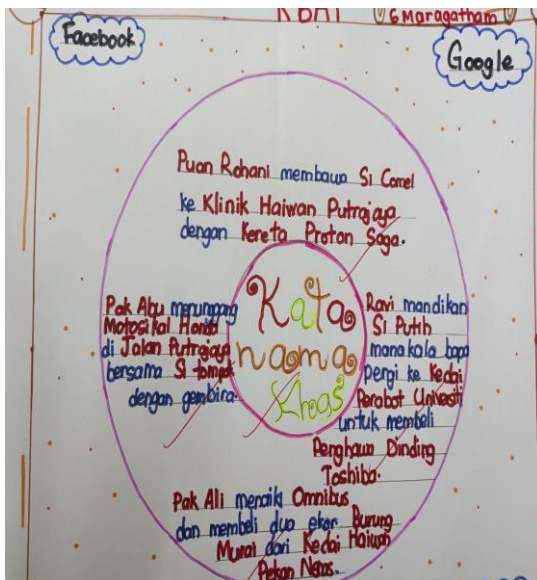 KBAT
6 Maragatham
Facebook
Google
Puan Rohani membawa Si Comel
ke Klinik Haiwan Putrajaya
dengan Kereta Proton Saga.
Kata
nama
khas
Pak Abu menunggang
Motosikal Honda
di Jalan Putrajaya
bersama Si tompok
dengan gembira.
Ravi mandikan
Si Putih
manakala bapa
pergi ke Kedai
Perabot Universiti
untuk membeli
Penghawa Dinding
Toshiba.
Pak Ali menaiki Omnibus
dan membeli dua ekor Burung
Murai dari Kedai Haiwan
Pekan